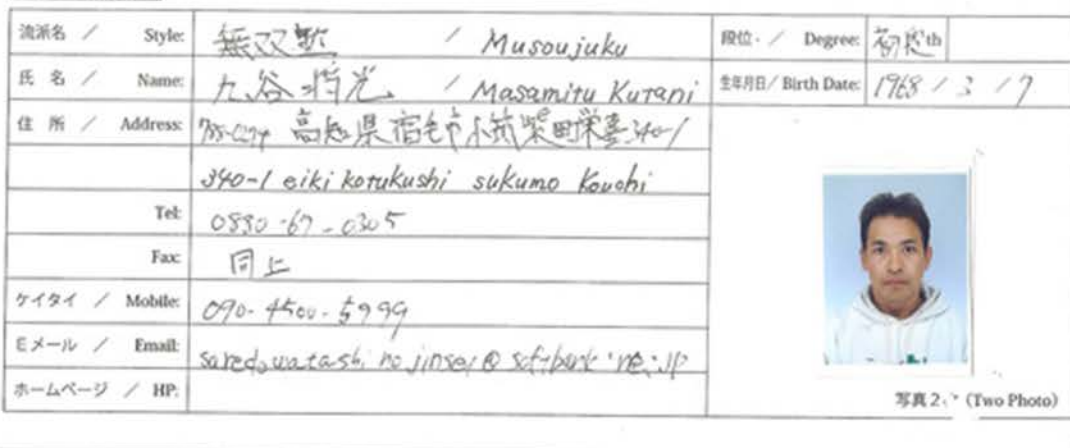 流派名 / Style: 無双塾 / Musoujuku 段位・/ Degree: 初段th
氏 名 / Name: 九谷将光 / Masamitu Kutani 生年月日/ Birth Date: 1968 / 3 / 7
住 所 / Address: 高知県宿毛市小筑紫町栄喜340-1
340-1 eiki kotukushi sukumo Kouchi
Tel: 0880-67-0305
Fax: 同上
ケイタイ / Mobile: 090-4500-5999
Eメール / Email: saredowatashinojinsei@softbank.ne.jp
ホームページ / HP:
写真2 (Two Photo)